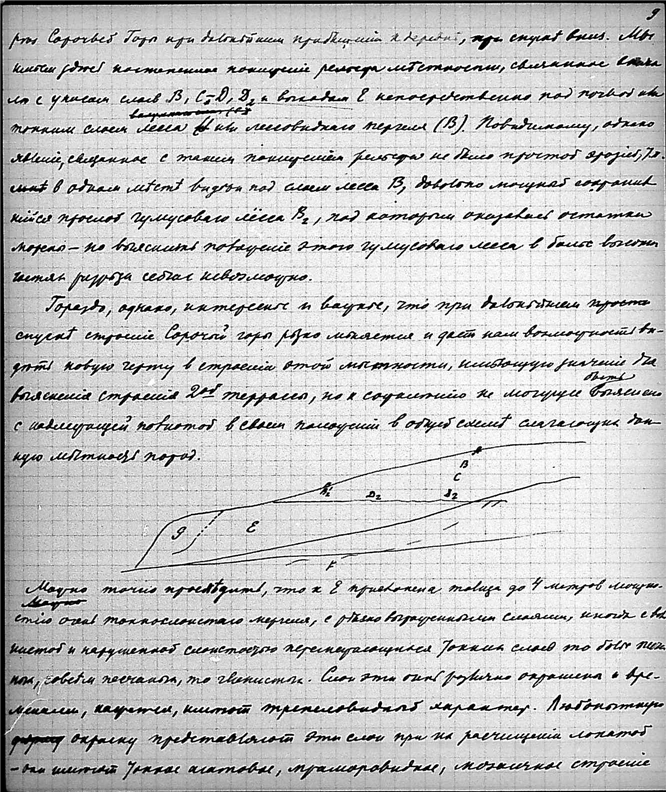 9
Сорочьей Горы при дальнѣйшем приближеніи к деревнѣ, при спускѣ вниз. Мы
имѣем здѣсь постепенное пониженіе рельефа мѣстности, связанное
с уносом слоев B, C, D, D₂ и выходом E непосредственно под почвой или
тонким слоем лесса или лессовиднаго мергеля (B). Повидимому, однако
явленіе, связанное с таким пониженіем рельефа не было простой эрозіей,
в одном мѣстѣ виден под слоем лесса B, довольно мощный сохранив-
шійся прослой гумусоваго лёсса B₂, под которым оказались остатки
морены — но выяснить поведеніе этого гумусоваго лесса в более высоких
частях разрѣза сейчас невозможно.
Гораздо, однако, интереснѣе и важнѣе, что при дальнѣйшем
спускѣ строеніе Сорочьей горы рѣзко мѣняется и дает нам возможность ви-
дѣть новую черту в строеніи этой мѣстности, имѣющую значеніе для
выясненія строенія 2ой террассы, но к сожалѣнію не могущее быть выяснено
с надлежащей полнотой в своем положеніи в общей схемѣ слагающих дан-
ную мѣстность пород.
A
B
C
B₂ D₂ D₂
g E
F
Можно точно прослѣдить, что к E прислонена толща до 4 метров мощно-
стью очень тонкослоистаго мергеля, с рѣзко выраженными слоями, иногда с вол-
нистой и нарушенной слоистостью перемежающихся тонких слоев то болѣе
совсѣм песчаных, то глинистых. Слои эти очень различно окрашены и вре-
менами, кажется, имѣют трепеловидный характер. Любопытную
окраску представляют эти слои при их расчищеніи лопатой
— они имѣют тонкое агатовое, мраморовидное, мозаичное строеніе